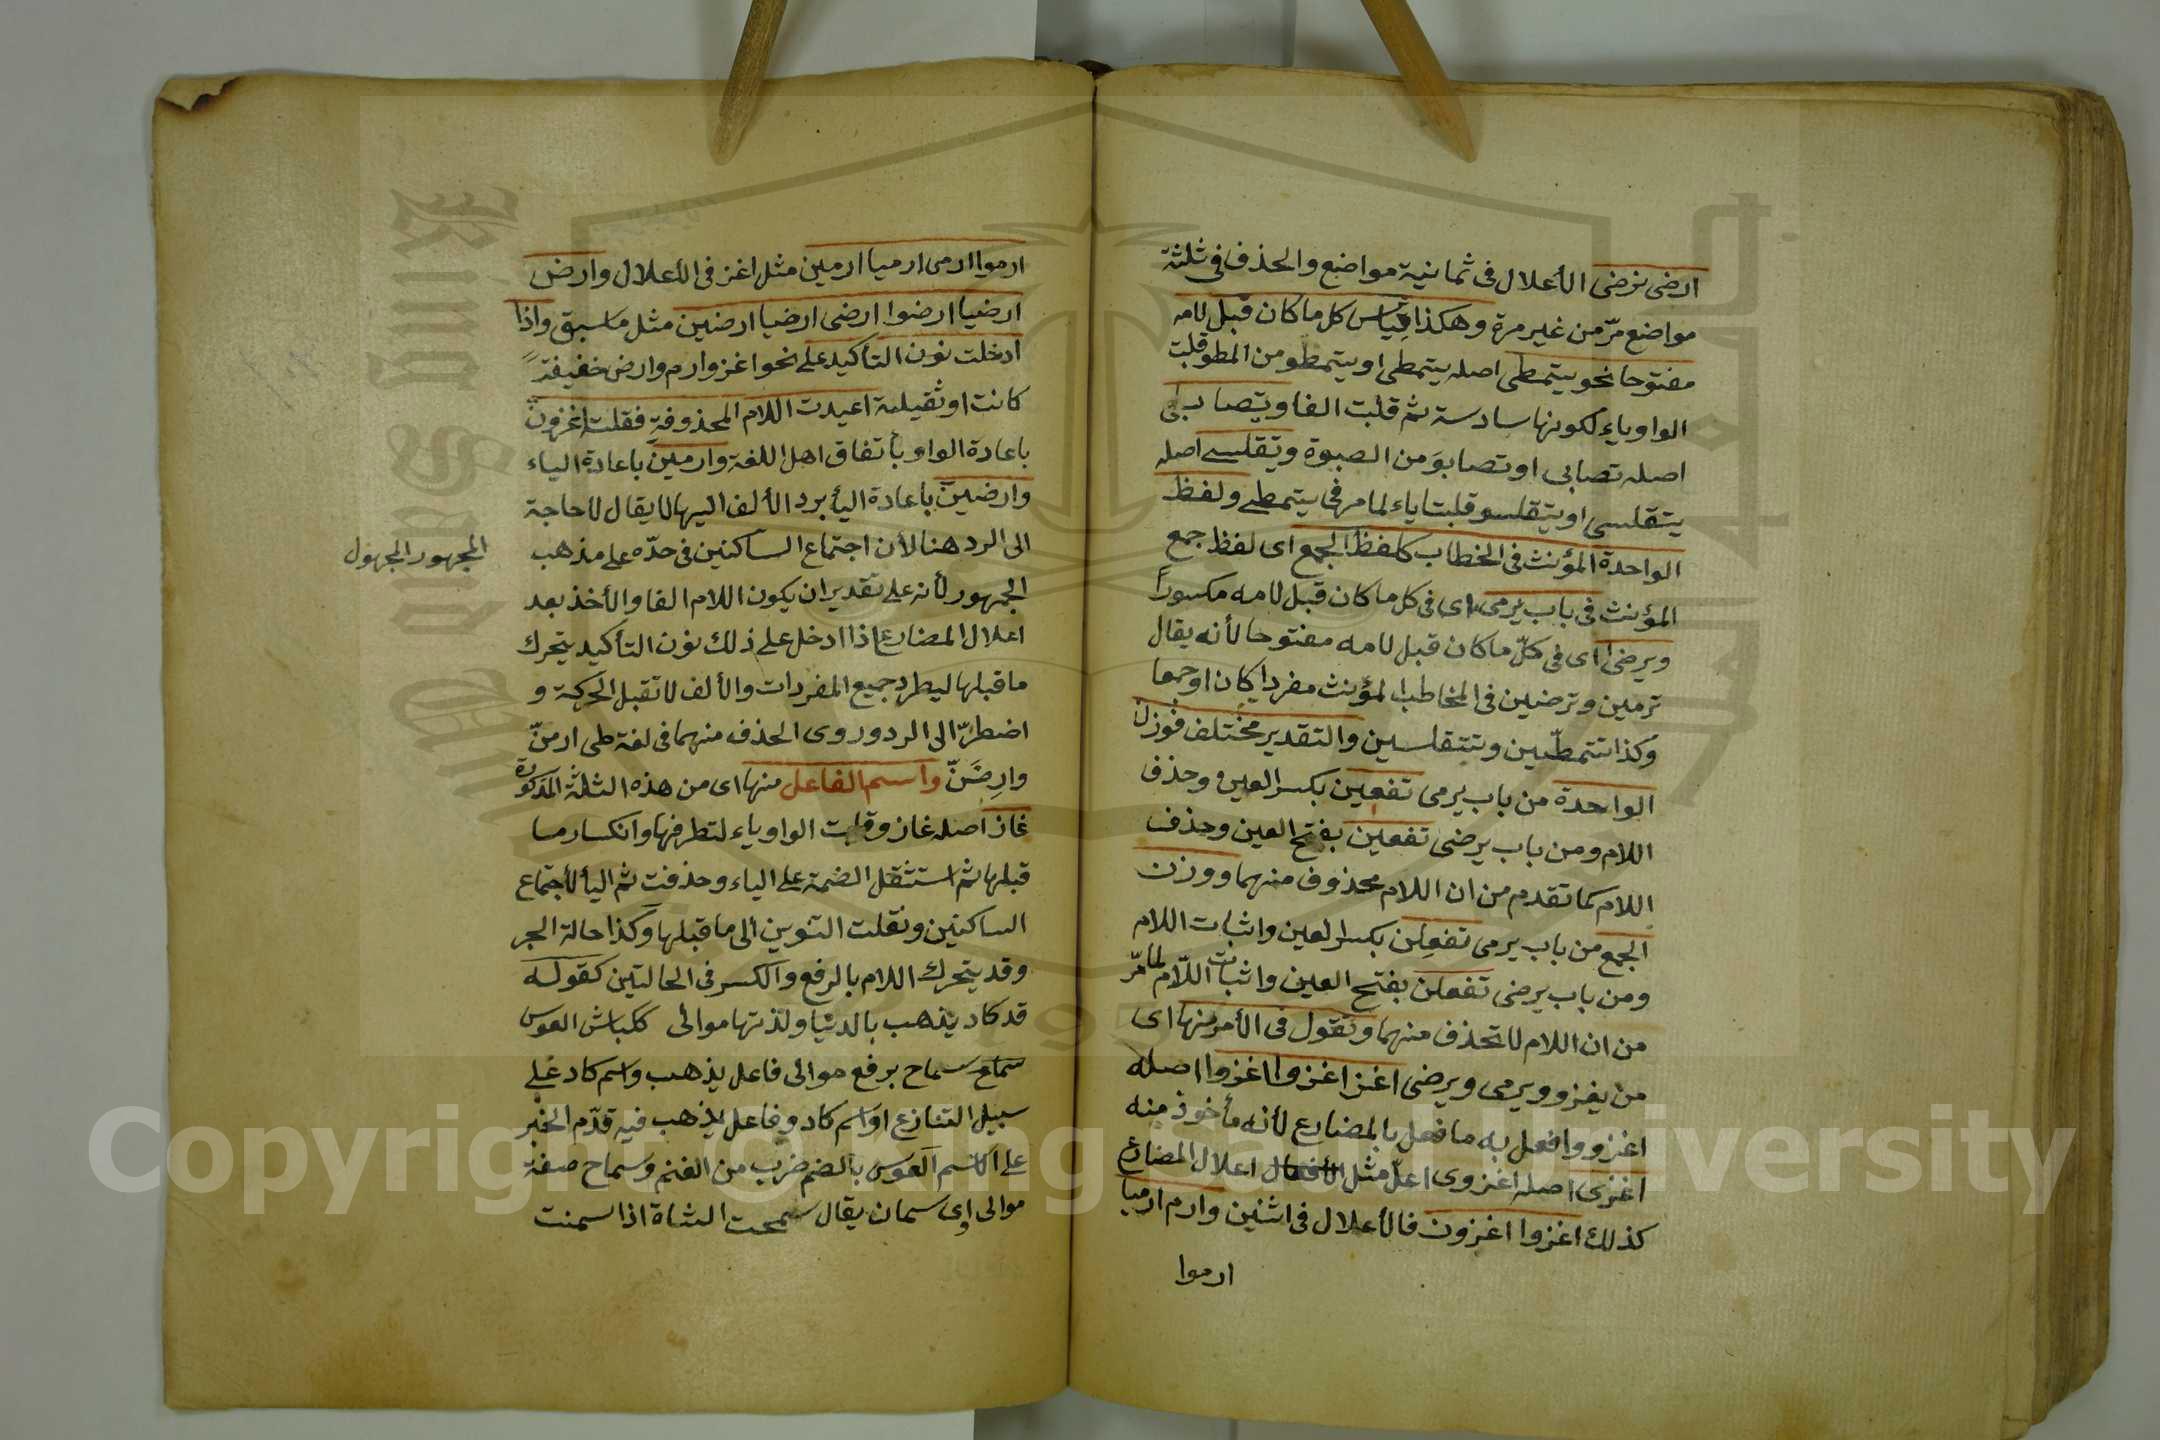 ارضى نرضى الأعلال فى ثمانية مواضع والحذف فى ثلثة
مواضع مرّ من غير مرة وهكذا قياس كل ما كان قبل لامه
مفتوحا نحو يتمطى اصله يتمطى او يتمطو من المطو قلبت
الواو ياء لكونها سادسة ثم قلبت الفا ويتصابى
اصله تصابى او تصابو من الصبوة ويتقلسى اصله
يتقلسى او يتقلسو قلبت ياء لما مر فى يتمطى ولفظ
الواحدة المؤنث فى الخطاب كلفظ الجمع اى لفظ جمع
المؤنث فى باب يرمى اى فى كل ما كان قبل لامه مكسوراً
ويرضى اى فى كلّ ما كان قبل لامه مفتوحا لأنه يقال
ترمين وترضين فى المخاطب المؤنث مفردا كان او جمعا
وكذا تتمطّين وتتقلسين والتقدير مختلف فوزن
الواحدة من باب يرمى تفعين بكسر العين وحذف
اللام ومن باب يرضى تفعين بفتح العين وحذف
اللام كما تقدم من ان اللام محذوف منهما ووزن
الجمع من باب يرمى تفعلن بكسر العين واثبات اللام
ومن باب يرضى تفعلن بفتح العين واثبات اللّام لما مرّ
من ان اللام لا تحذف منهما وتقول فى الأمر منها اى
من يغزو ويرمى ويرضى اغز اغزوا اغزوا اصله
اغزووا فعل به ما فعل بالمضارع لأنه مأخوذ منه
اغزى اصله اغزوى اعلّ مثل اعلال المضارع
كذلك اغزوا اغزون فالأعلال فى اثنين وارم ارميا
ارموا
ارموا ارمى ارميا ارمين مثل اغز فى الأعلال وارض
ارضيا ارضوا ارضى ارضيا ارضين مثل ما سبق واذا
ادخلت نون التأكيد على نحو اغز وارم وارض خفيفة
كانت او ثقيلة اعيدت اللام المحذوفة فقلت اغزونّ
باعادة الواو بأتفاق اهل اللغة وارمينّ باعادة الياء
وارضينّ باعادة اليأ برد الألف اليها لا يقال لا حاجة
الى الرد هنا لأن اجتماع الساكنين فى حدّه على مذهب
الجمهور لأنه على تقدير ان يكون اللام الفا والأخذ بعد
اعلال المضارع اذا ادخل على ذلك نون التأكيد يتحرك
ما قبلها ليطرد جميع المفردات والألف لا تقبل الحركة و
اضطرّ الى الرد وروى الحذف منهما فى لغة طى ارمنّ
وارضَنّ واسم الفاعل منها اى من هذه الثلثة المذكورة
غاز اصله غازو قلبت الواو ياء لتطرفها وانكسار ما
قبلها ثم استثقل الضمة على الياء وحذفت ثم اليأ لأجتماع
الساكنين ونقلت التنوين الى ما قبلها وكذا حالة الجر
وقد يتحرك اللام بالرفع والكسر فى الحالتين كقوله
قد كاد يذهب بالدنيا ولذتها موالى ككباش العوس
سماح برفع موالى فاعل يذهب واسم كاد على
سبيل التنازع او اسم كاد وفاعل يذهب فيه قدّم الخبر
على الأسم العوس بالضم ضرب من الغنم وسماح صفة
موالى اى سمان يقال سمحت الشاة اذا سمنت
المجهور المجهول
Copyright © King Saud University